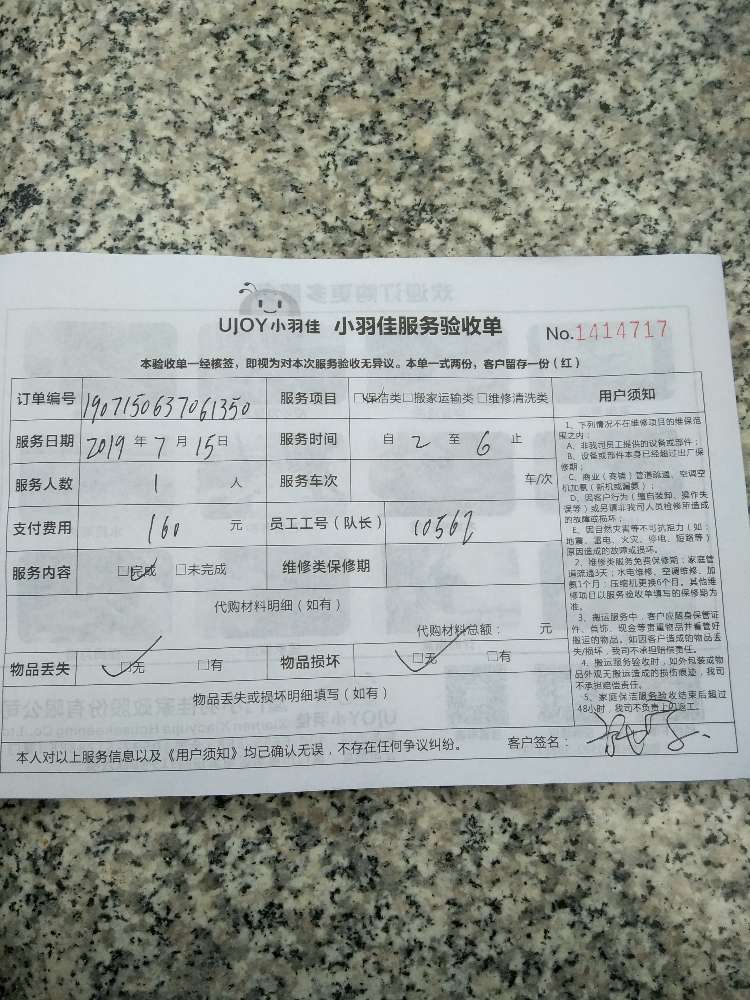 UJOY小羽佳 小羽佳服务验收单 No.1414717
本验收单一经核签，即视为对本次服务验收无异议。本单一式两份，客户留存一份（红）
订单编号 190715063706l350 服务项目 □保洁类□搬家运输类□维修清洗类 用户须知
服务日期 2019年7月15日 服务时间 自2至6止
服务人数 1人 服务车次 车/次
支付费用 160元 员工工号（队长） 10562
服务内容 □完成 □未完成 维修类保修期
代购材料明细（如有）
代购材料总额： 元
物品丢失 □无 □有 物品损坏 □无 □有
物品丢失或损坏明细填写（如有）
本人对以上服务信息以及《用户须知》均已确认无误，不存在任何争议纠纷。 客户签名：
1、下列情况不在维修项目的维保范
围之内：
A、非我司员工提供的设备或部件；
B、设备或部件本身已经超过出厂保
修期；
C、商业（商铺）管道疏通、空调空
机加氨（新机或漏氨）；
D、因客户行为（擅自装卸、操作失
误等）或另请非我司人员检修所造成
的故障或损坏；
E、因自然灾害等不可抗拒力（如：
地震、雷电、火灾、停电、短路等）
原因造成的故障或损坏。
2、维修类服务免费保修期：家庭管
道疏通3天；水电维修、空调维修、加
氨1个月；压缩机更换6个月。其他维
修项目以服务验收单填写的保修期为
准。
3、搬运服务中，客户应随身保管证
件、首饰、现金等贵重物品并看管好
搬运的物品。如因客户造成的物品丢
失/损坏，我司不承担赔偿责任。
4、搬运服务验收时，如外包装或物
品外观无搬运造成的损伤痕迹，我司
不承担赔偿责任。
5、家庭保洁服务验收结束后超过
48小时，我司不负责上门返工。